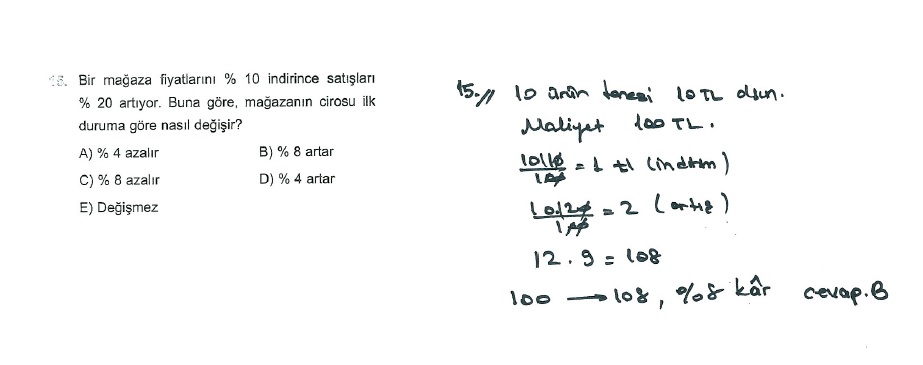 15. Bir mağaza fiyatlarını % 10 indirince satışları
% 20 artıyor. Buna göre, mağazanın cirosu ilk
duruma göre nasıl değişir?
A) % 4 azalır B) % 8 artar
C) % 8 azalır D) % 4 artar
E) Değişmez
15.// 10 ürün tanesi 10 TL olsun.
Maliyet 100 TL.
10.10/100 = 1 tl (indirim)
10.20/100 = 2 (artış)
12 . 9 = 108
100 → 108, %8 kâr cevap.B